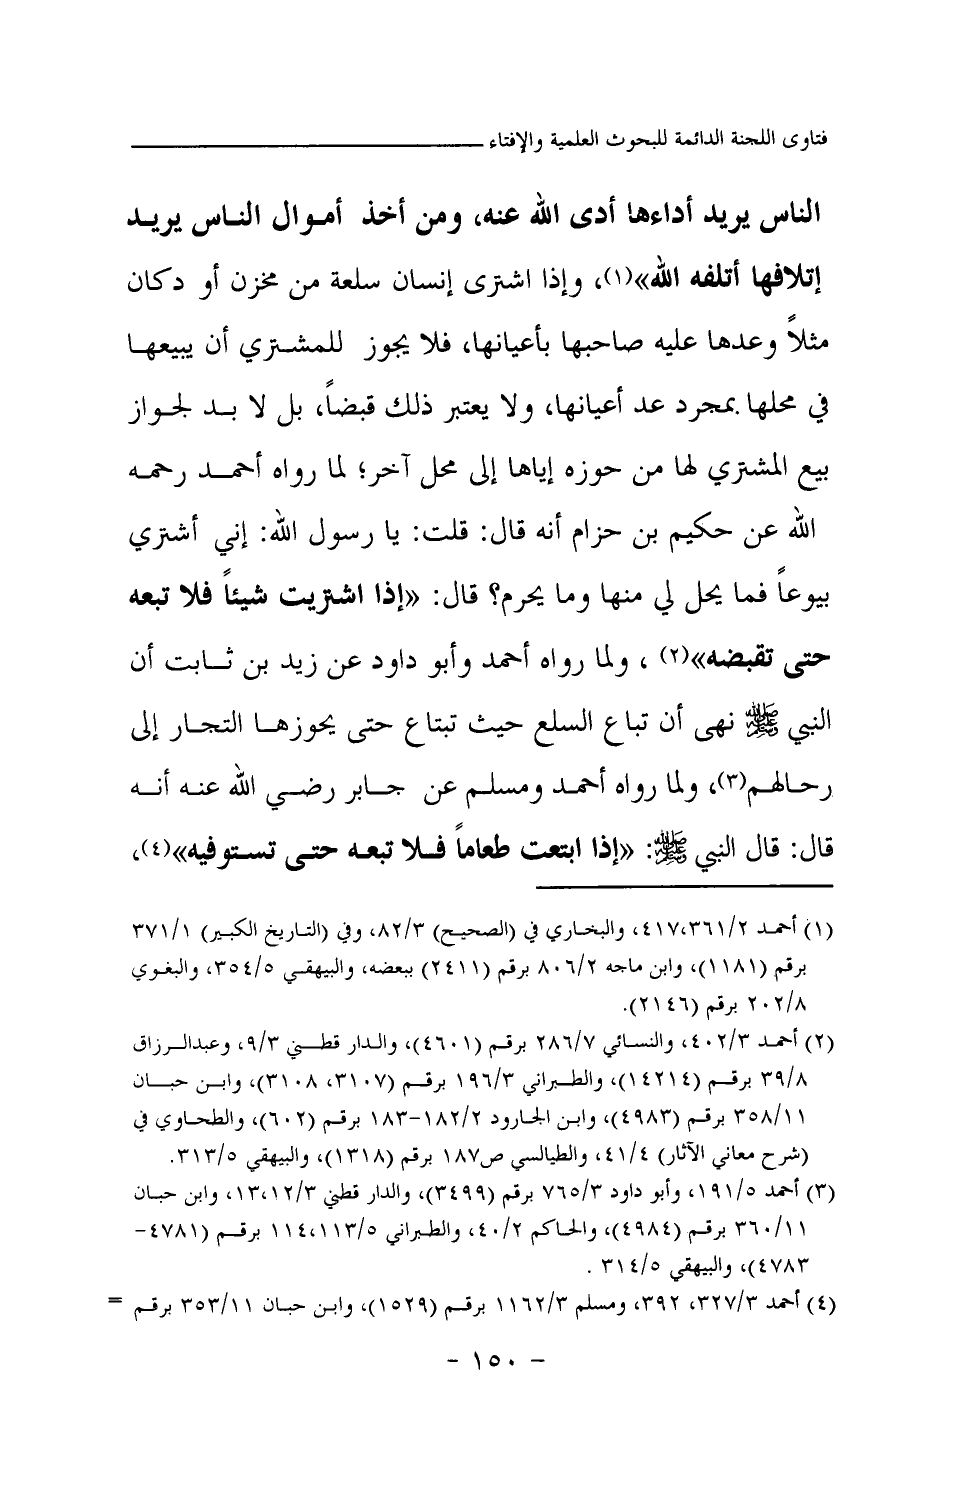 فتاوى اللجنة الدائمة للبحوث العلمية والإفتاء
الناس يريد أداءها أدى الله عنه، ومن أخذ أموال الناس يريد
إتلافها أتلفه الله»(١)، وإذا اشترى إنسان سلعة من مخزن أو دكان
مثلاً وعدها عليه صاحبها بأعيانها، فلا يجوز للمشتري أن يبيعها
في محلها بمجرد عد أعيانها، ولا يعتبر ذلك قبضاً، بل لا بد لجواز
بيع المشتري لها من حوزه إياها إلى محل آخر؛ لما رواه أحمد رحمه
الله عن حكيم بن حزام أنه قال: قلت: يا رسول الله: إني أشتري
بيوعاً فما يحل لي منها وما يحرم؟ قال: «إذا اشتريت شيئاً فلا تبعه
حتى تقبضه»(٢) ، ولما رواه أحمد وأبو داود عن زيد بن ثابت أن
النبي ﷺ نهى أن تباع السلع حيث تبتاع حتى يحوزها التجار إلى
رحالهم(٣)، ولما رواه أحمد ومسلم عن جابر رضي الله عنه أنه
قال: قال النبي ﷺ: «إذا ابتعت طعاماً فلا تبعه حتى تستوفيه»(٤)،
(١) أحمد ٣٦١/٢،٤١٧، والبخاري في (الصحيح) ٨٢/٣، وفي (التاريخ الكبير) ٣٧١/١
برقم (١١٨١)، وابن ماجه ٨٠٦/٢ برقم (٢٤١١) ببعضه، والبيهقي ٣٥٤/٥، والبغوي
٢٠٢/٨ برقم (٢١٤٦).
(٢) أحمد ٤٠٢/٣، والنسائي ٢٨٦/٧ برقم (٤٦٠١)، والدار قطني ٩/٣، وعبدالرزاق
٣٩/٨ برقم (١٤٢١٤)، والطبراني ١٩٦/٣ برقم (٣١٠٧، ٣١٠٨)، وابن حبان
٣٥٨/١١ برقم (٤٩٨٣)، وابن الجارود ١٨٢/٢-١٨٣ برقم (٦٠٢)، والطحاوي في
(شرح معاني الآثار) ٤١/٤، والطيالسي ص١٨٧ برقم (١٣١٨)، والبيهقي ٣١٣/٥.
(٣) أحمد ١٩١/٥، وأبو داود ٧٦٥/٣ برقم (٣٤٩٩)، والدار قطني ١٢/٣،١٣، وابن حبان
٣٦٠/١١ برقم (٤٩٨٤)، والحاكم ٤٠/٢، والطبراني ١١٣/٥،١١٤ برقم (٤٧٨١-
٤٧٨٣)، والبيهقي ٣١٤/٥ .
(٤) أحمد ٣٢٧/٣، ٣٩٢، ومسلم ١١٦٢/٣ برقم (١٥٢٩)، وابن حبان ٣٥٣/١١ برقم =
- ١٥٠ -